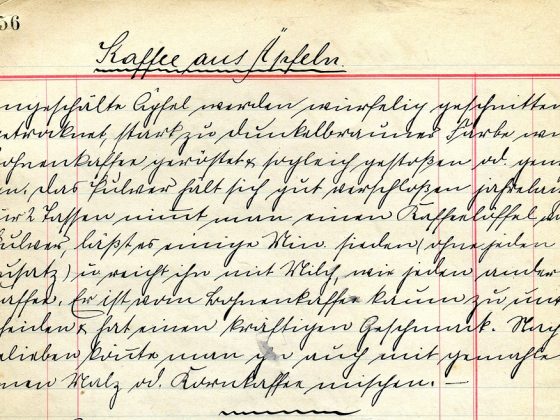 56
Kaffee aus Äpfeln.
ngeschälte Äpfel werden würfelig geschnitten
etrocknet, stark zu dunkelbrauner Farbe wi
ohnenkaffee geröstet & sogleich gestoßen od. gem
en. das Pulver hält sich gut verschloßen jahrelan
ür 2 Tassen nimmt man einen Kaffeelöffel
ulver, läßt es einige Min. sieden (ohne jeden
usatz) u. reicht ihn mit Milch, wie jeden ander
affee. Er ist vom Bohnenkaffee kaum zu un
heiden & hat einen kräftigen Geschmack. Nach
elieben könnte man ihn auch mit gemahle
nen Malz od. Kornkaffee mischen. —